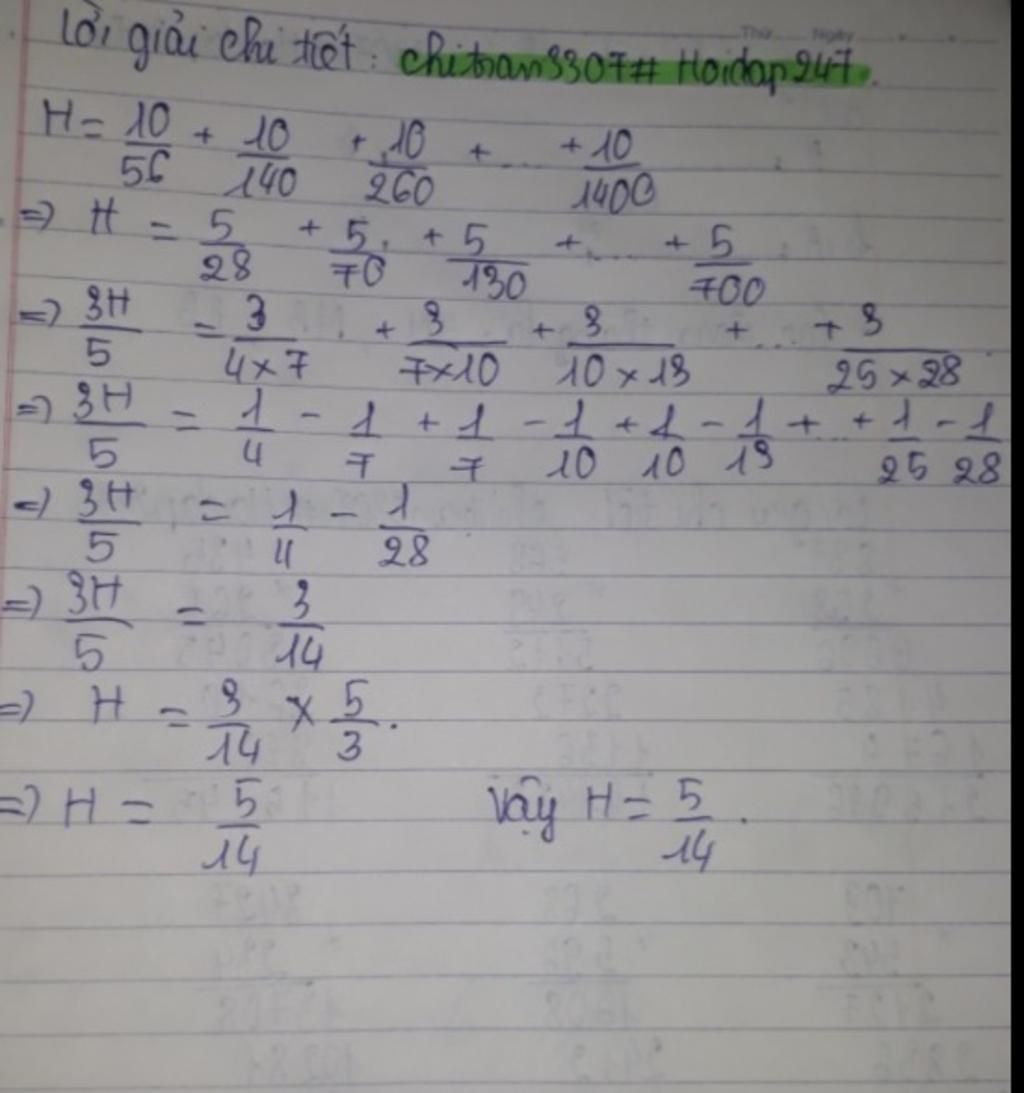 Lời giải chi tiết: chitran3307# Hoidap247.
H = 10/56 + 10/140 + 10/260 + ... + 10/1400
=> H = 5/28 + 5/70 + 5/130 + ... + 5/700
=> 3H/5 = 3/4×7 + 3/7×10 + 3/10×13 + ... + 3/25×28
=> 3H/5 = 1/4 - 1/7 + 1/7 - 1/10 + 1/10 - 1/13 + ... + 1/25 - 1/28
=> 3H/5 = 1/4 - 1/28
=> 3H/5 = 3/14
=> H = 3/14 × 5/3.
=> H = 5/14 Vậy H = 5/14.